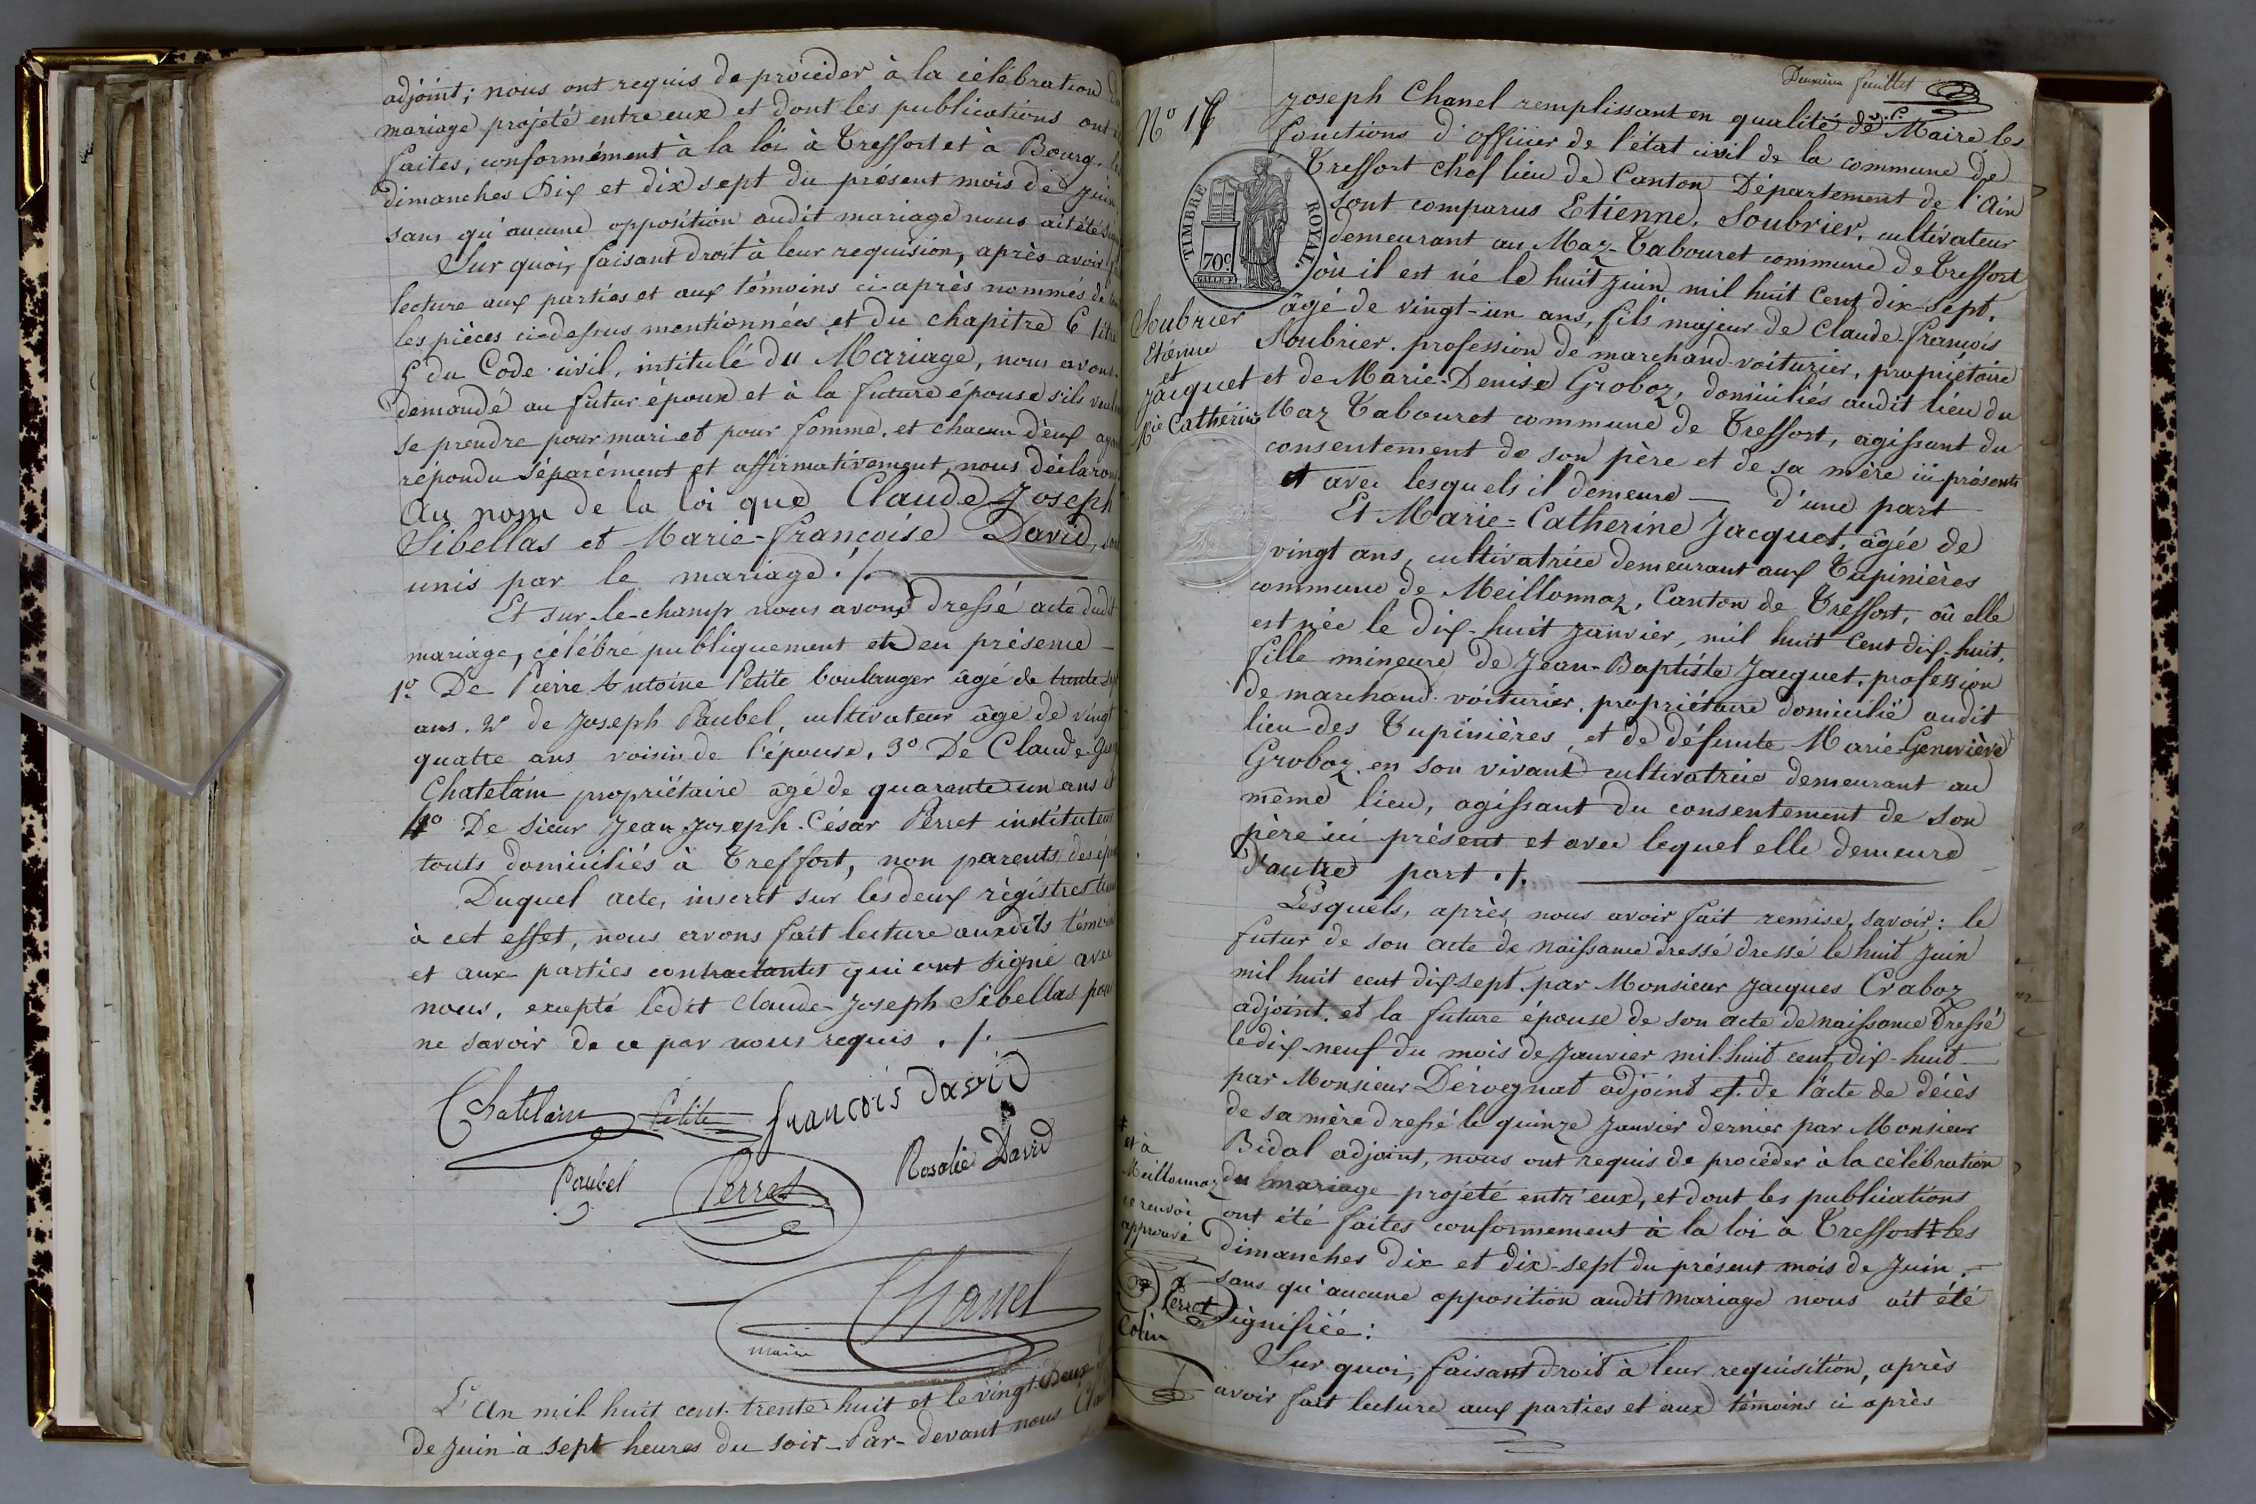 adjoint; nous ont requis de procéder à la célébration du
mariage projété entre eux et dont les publications ont
faites, conformément à la loi à Treffort et à Bourg, les
dimanches Dix et dix sept du présent mois de juin
sans qu'aucune opposition audit mariage nous ait été
Sur quoi, faisant droit à leur requision, après avoir
lecture aux parties et aux témoins ci-après nommés de
les pièces ci-dessus mentionnées et du chapitre 6 titre
5 du Code civil, intitulé du Mariage, nous avons
demandé au futur époux et à la future épouse s'ils
se prendre pour mari et pour femme, et chacun d'eux ayant
répondu séparément et affirmativement, nous déclarons
Au nom de la loi que Claude Joseph
Sibellas et Marie-françoise David, sont
unis par le mariage ./.
Et sur-le-champ nous avons dressé acte dudit
mariage, célébré publiquement et en présence
1º De Pierre Antoine Petite boulanger âgé de trente
ans. 2º de Joseph Paubel, cultivateur âgé de vingt
quatte ans voisin de l'épouse. 3º De Claude
Chatelain propriétaire agé de quarante un ans et
4º De sieur Jean Joseph-César Perret instituteur
touts domiciliés à Treffort, non parents des
Duquel acte, inscrit sur les deux règistres
à cet effet, nous avons fait lecture auxdits témoins
et aux parties contractantes qui ont signé avec
nous, excepté ledit Claude-Joseph Sibellas pour
ne savoir de ce par nous requis ./.
Chatelain Petite francois David
Paubel Perret Rosalie David
Chanel
maire
L'An mil huit cent trente huit et le vingt Deux
de juin à sept heures du soir Par-devant nous
Deuxième feuillet
Nº 17
Joseph Chanel remplissant en qualité de Maire les
fonctions d'officier de l'état civil de la commune de
Treffort chef lieu de Canton Département de l'Ain
TIMBRE ROYAL
70c
sont comparus Etienne, Soubrier, cultivateur
demeurant au Maz-Tabouret commune de Treffort
où il est né le huit juin mil huit Cent dix-sept,
Soubrier
Etienne
et
Jacquet
Mie Catherine
âgé de vingt-un ans, fils majeur de Claude-françois
Soubrier, profession de marchand-voiturier, propriétaire
et de Marie-Denise Groboz, domiciliés audit lieu du
Maz Tabouret commune de Treffort, agissant du
consentement de son père et de sa mère ici présents
et avec lesquels il demeure — d'une part
Et Marie=Catherine Jacquet, âgée de
vingt ans, cultivatrice demeurant aux Tupinières
commune de Meillonnaz, Canton de Treffort, où elle
est née le dix-huit janvier, mil huit Cent dix-huit,
fille mineure de Jean-Baptiste Jacquet, profession
de marchand voiturier, propriétaire domicilié audit
lieu des Tupinières, et de défunte Marie-Geneviève
Groboz, en son vivant cultivatrice demeurant au
même lieu, agissant du consentement de son
père ici présent et avec lequel elle demeure
d'autre part ./.
Lesquels, après nous avoir fait remise, savoir: le
futur de son acte de naissance dressé dressé le huit juin
mil huit cent dix-sept par Monsieur Jacques Craboz
adjoint, et la future épouse de son acte de naissance Dressé
le dix-neuf du mois de janvier mil-huit cent dix-huit
par Monsieur Dérognat adjoint et de l'acte de décès
de sa mère dressé le quinze janvier dernier par Monsieur
Bidal adjoint, nous ont requis de procéder à la célébration
du mariage projété entr'eux, et dont les publications
ont été faites conformement à la loi à Treffort + les
Dimanches dix et dix-sept du présent mois de Juin,
sans qu'aucune opposition audit mariage nous ait été
signifiée:
+ et à
Meillonnaz
ce renvoi
approuvé
Perret
Colin
Sur quoi, faisant droit à leur requisition, après
avoir fait lecture aux parties et aux témoins ci après